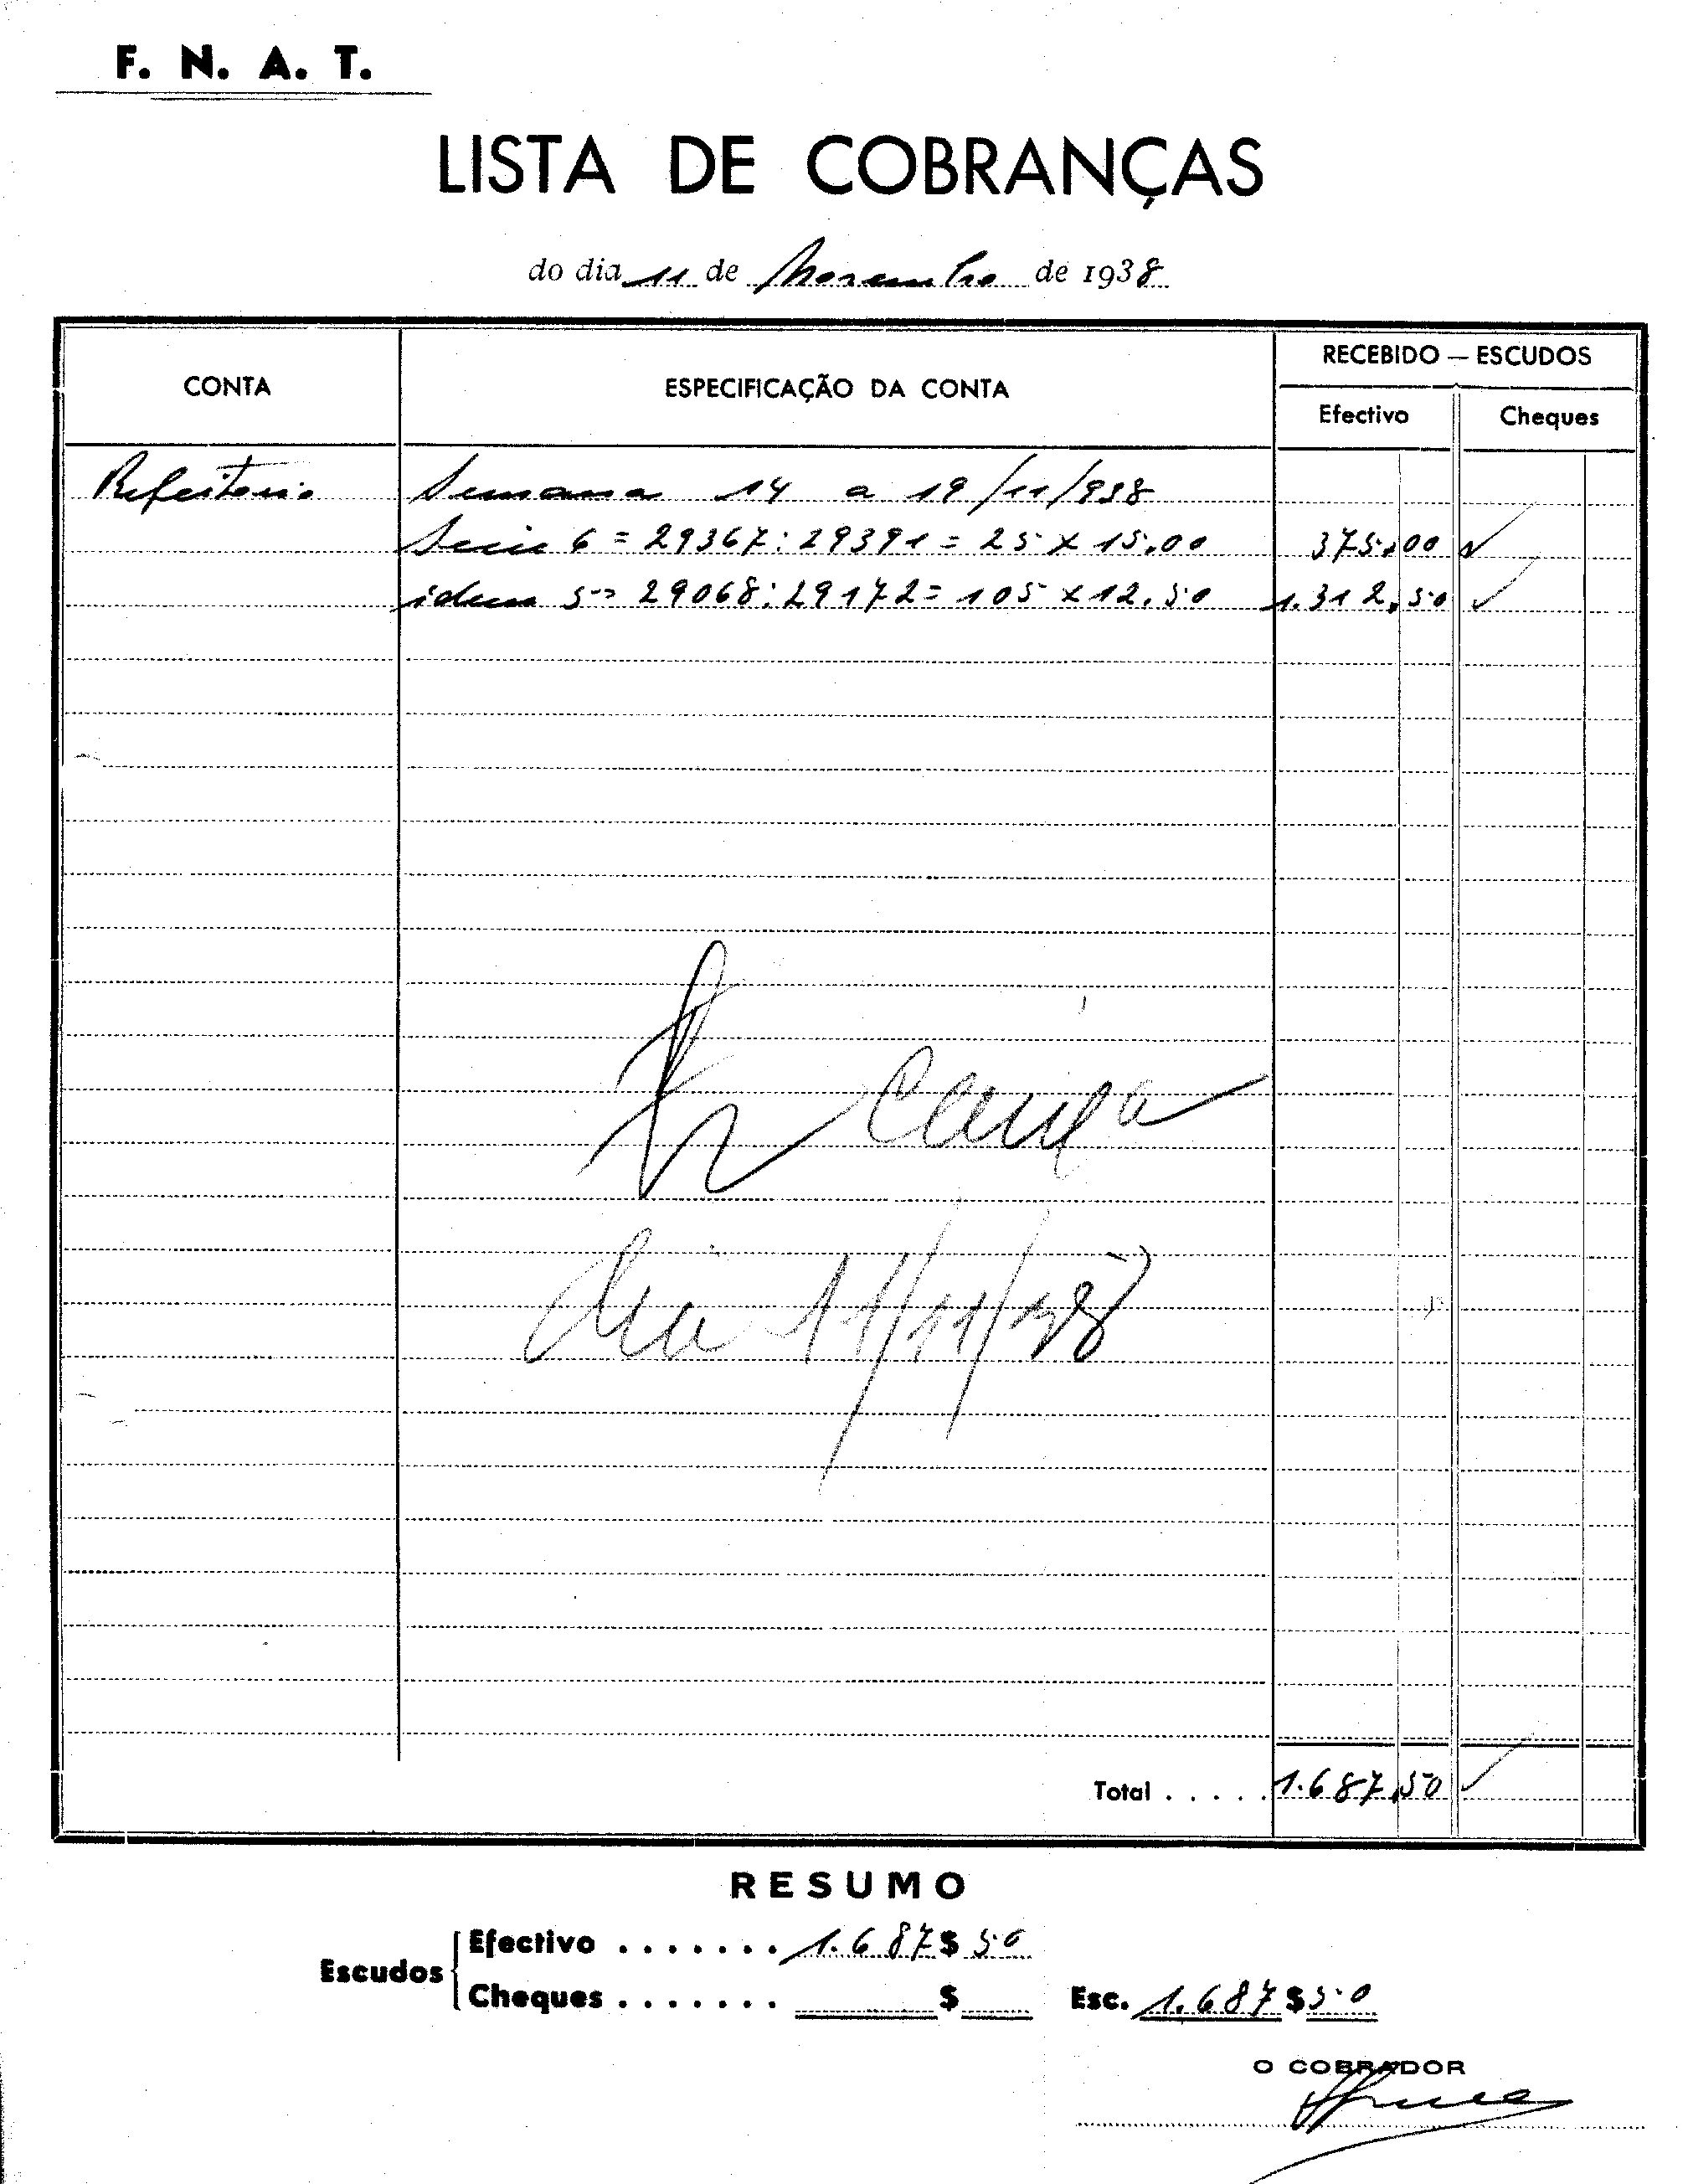 F. N. A. T.
LISTA DE COBRANÇAS
do dia 11 de Novembro de 1938
CONTA
ESPECIFICAÇÃO DA CONTA
RECEBIDO — ESCUDOS
Efectivo
Cheques
Refeitorio
Semana 14 a 19/11/938
Serie 6 = 29367:29391 = 25 x 15,00 375,00
idem 5 = 29068:29172 = 105 x 12,50 1.312,50
Caixa
dia 11/11/38
Total . . . . . 1.687,50
RESUMO
Escudos
Efectivo . . . . . . . 1.687$50
Cheques . . . . . . . $
Esc. 1.687$50
O COBRADOR